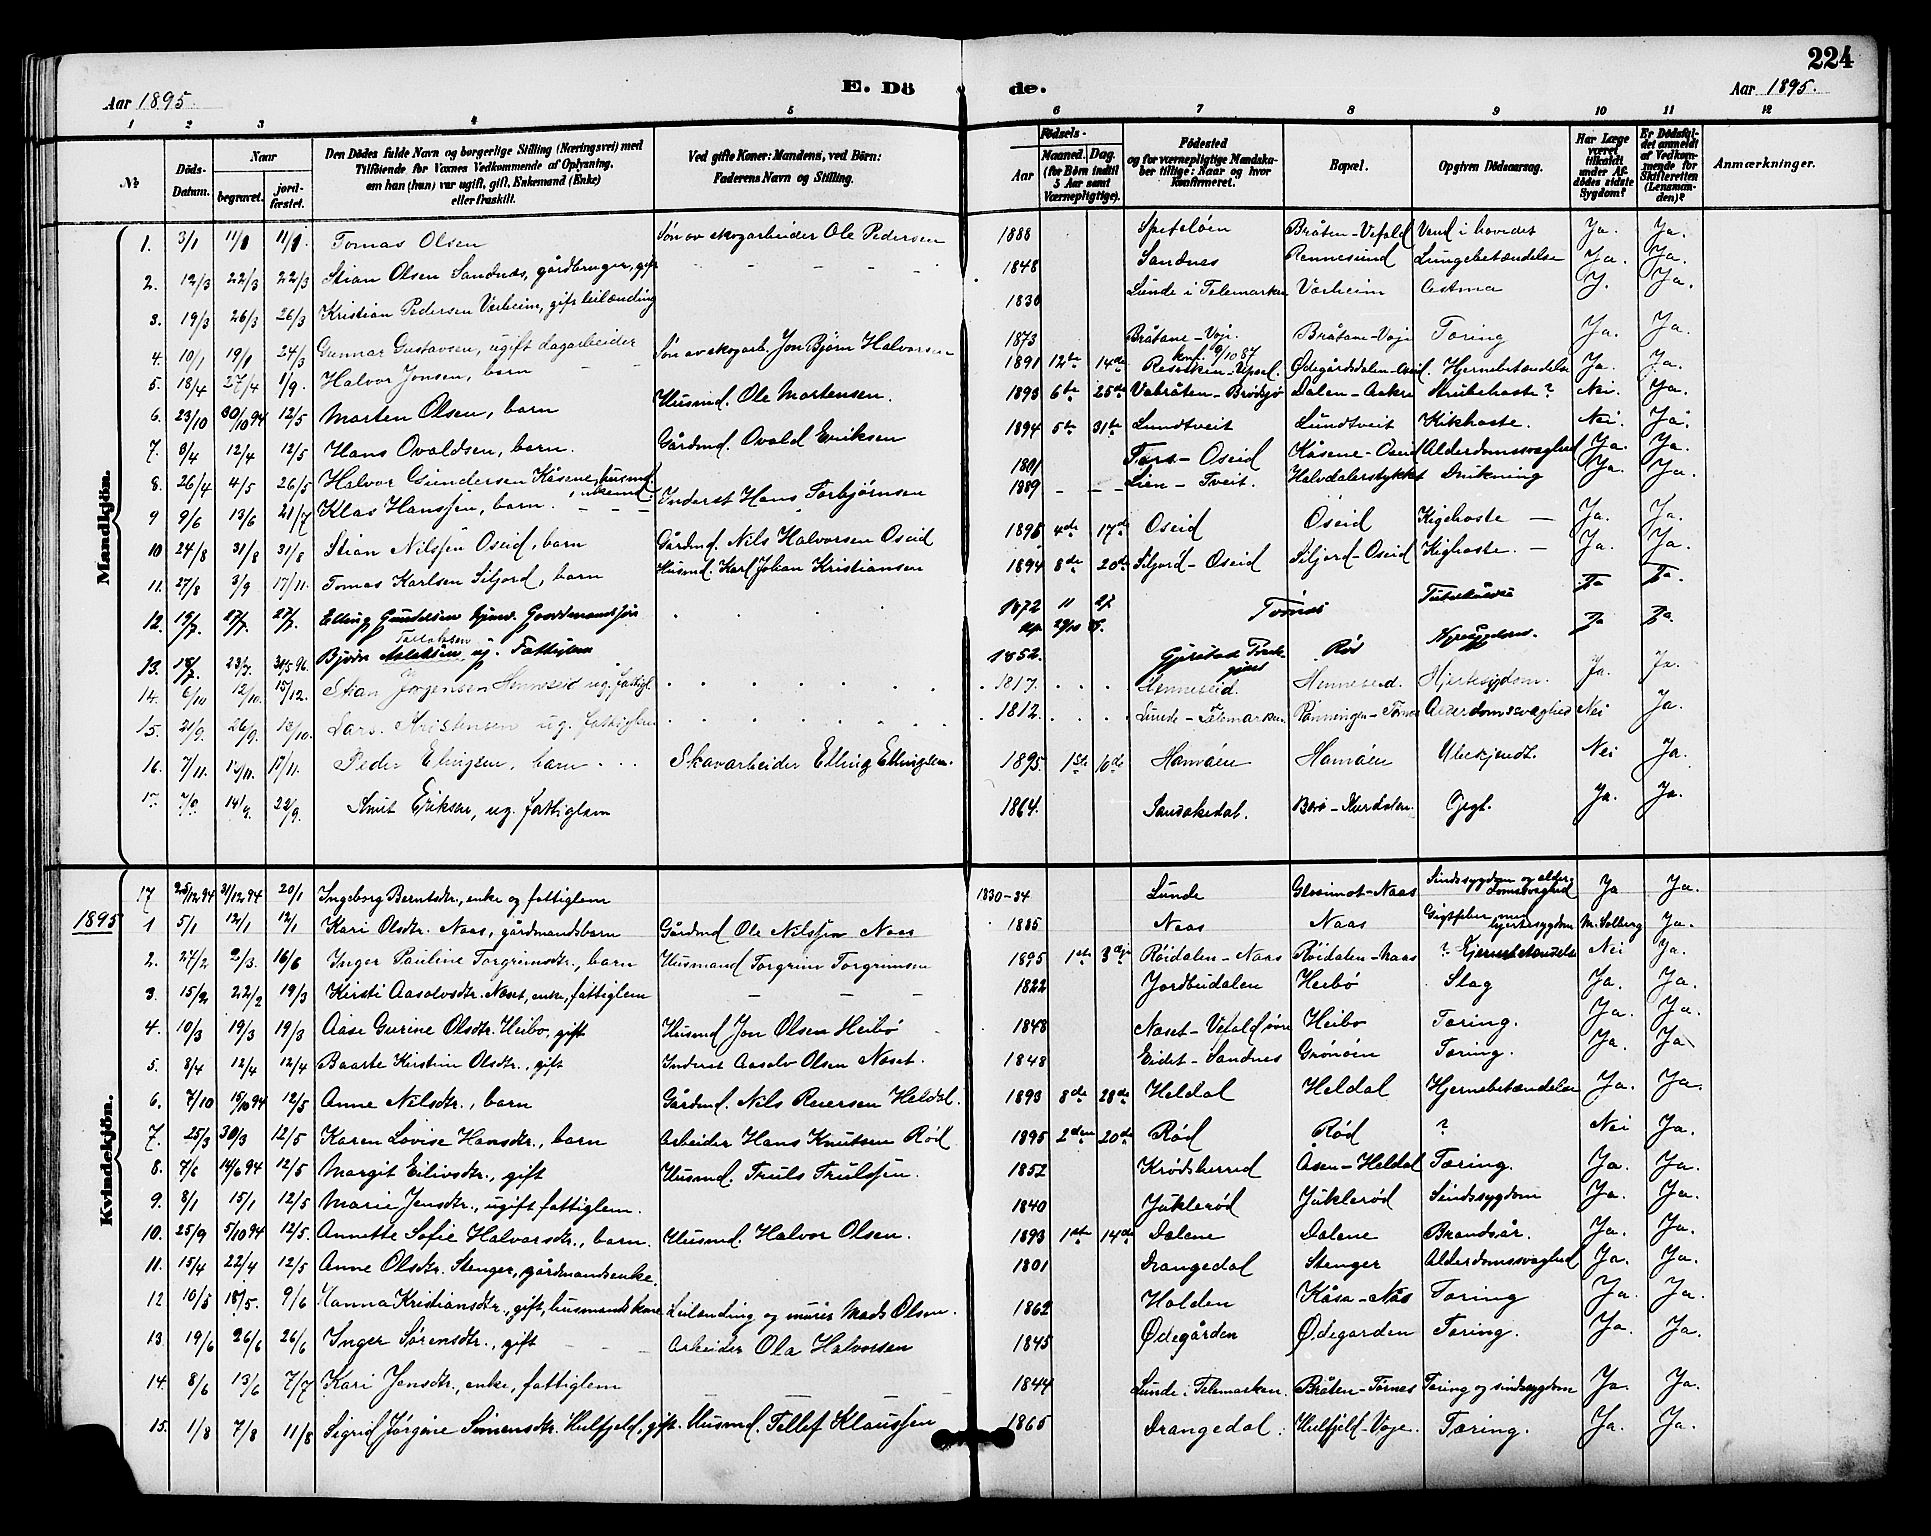 224
Aar 1895.
E. Dö
de.
Aar 1895.
1 2 3 4 5 6 7 8 9 10 11 12
№
Döds-Datum.
Naar
begravet.
jord-fæstet.
Den Dödes fulde Navn og borgerlige Stilling (Næringsvei) med Tilföiende for Voxnes Vedkommende af Oplysning, om han (hun) var ugift, gift, Enkemand (Enke) eller fraskilt.
Ved gifte Koner: Mandens, ved Börn: Faderens Navn og Stilling.
Födsels-
Aar
Maaned. Dag.
(for Börn indtil 5 Aar samt Værnepligtige).
Födested og for værnepligtige Mandskaber tillige: Naar og hvor Konfirmeret.
Bopæl.
Opgiven Dödsaarsag.
Har Læge været tilkaldt under Afdödes sidste Sygdom?
Er Dödsfaldet anmeldt af Vedkommende for Skifteretten (Lensmanden)?
Anmærkninger.
Mandkjön.
1. 3/1 11/1 11/1 Tomas Olsen Søn av skogarbeider Ole Pedersen 1888 Speteløen Bråten-Vefald Vand i hovedet Ja. Ja.
2. 12/3 22/3 22/3 Stian Olsen Sandnæs, gårdbruger, gift 1848 Sandnes Rennesund Lungebetændelse Ja. Ja.
3. 19/3 26/3 26/3 Kristian Pedersen Værheim, gift leilænding 1830 Lunde i Telemarken Værheim Astma Y. Ja.
4. 10/1 19/1 24/3 Gunnar Gustavsen, ugift dagarbeider 1873 Bråtane-Voje. konf. 9/10 87 Bråtane-Voje Tæring Ja. Ja.
5. 18/4 27/4 1/9. Halvor Jonsen, barn Søn av skogarb. Jon Bjørn Halvorsen 1891 12te 14de Ødegårdsdalen-Oseid. Hjernebetændelse Ja. Ja.
6. 23/10 30/10 94 12/5 Morten Olsen, barn Husmd. Ole Mortensen. 1893 6te 25de Vabråten-Brødsjø Dalen-Aakre Strubehoste? Nei. Ja.
7. 8/4 12/4 12/5 Hans Ovaldsen, barn. Gårdmd. Ovald Eriksen 1894 5te 31te Lundtveit Lundtveit Kikhoste. Nei. Ja.
8. 26/4 4/5 26/5 Halvor Gundersen Kåsene, husmd. enkemd. 1801 Tors-Oseid Kåsene-Oseid Alderdomssvaghed Ja. Ja.
9 9/6 13/6 21/7 Klas Hanssen, barn. Inderst Hans Torbjørnsen 1889 Lien-Tveit. Halvdalerstykket Drukning Ja. Ja.
10 24/8 31/8 31/8 Stian Nilssen Oseid, barn Gårdmd. Nils Halvorsen Oseid 1895 4de 17de Oseid Oseid Kighoste Ja. Ja.
11. 27/8 3/9 17/11. Tomas Karlsen Siljord, barn Husmd. Karl Johan Kristiansen 1894 8de 20de Siljord-Oseid Siljord-Oseid Kighoste. Ja. Ja.
12. 19/7. 27/7. 27/7. Elling Gundersen Gaardmandssøn 1872 11 27 Tørnes Ja Ja.
13. 18/7. 23/7. 31/5 96. Bjørn Aslaksen ug. Fattiglem 1852. Gjerstad Rød Ja Ja.
14. 6/10 12/10. 15/12. Stian Jørgensen Henneseid ug. fattigl. 1817. Henneseid. Henneseid. Hjertesygdom. Ja. Ja.
15. 21/9. 26/9. 13/10. Lars Kristensen ug. fattiglem 1812. Lunde-Telemarken. Rønningen-Tørnes Alderdomssvaghed Nei Ja.
16. 7/11. 13/11. 17/11. Peder Ellingsen, barn Skovarbeider Elling Ellingsen. 1895. 1ste 10de Hamøen Hamøen Ubekjendt. Nei Ja.
17. 7/9. 14/9. 22/9. Knut Eriksen, ug. fattiglem 1864. Sandøkedal. Gigt. Ja. Ja.
Kvindekjön.
17 25/12 94 31/12 94 20/1 Ingeborg Berntsdtr., enke og fattiglem 1830-34 Lunde Glosimot-Naas Sindssygdom og alderdomssvaghed Ja Ja.
1895
1 5/1 12/1 12/1 Kari Olsdtr. Naas, gårdmandsbarn Gårdmd Ole Nilssen Naas 1885 Naas Naas Gigtfeber med hjertesygdom M. Solberg Ja.
2. 27/2 2/3. 16/6 Inger Pauline Torgrimsdtr., barn Husmand Torgrim Torgrimsen 1895 1ste 3dje Røidalen-Naas Røidalen-Naas ? Hjernebetændelse Nei Ja.
3. 15/2 22/2 19/3 Kirsti Aasolvsdtr. Naset, enke, fattiglem 1822 Jordbudalen Heibø Slag Ja. Ja.
4. 10/3 19/3 19/3 Aase Gurine Olsdtr. Heibø, gift Husmd Jon Olsen Heibø 1848 Naset-Vefald øvre Heibø Tæring. Ja. Ja.
5. 3/4 12/4 12/4 Baarte Kirstine Olsdtr., gift Inderst Aasolv Olsen Naset. 1848 Eidet-Sandnes Grønøen Tæring. Ja. Ja
6. 7/10 15/10 94 12/5 Anne Nilsdtr., barn Gårdmd. Nils Reiersen Heldal. 1893 8de 28de Heldal Heldal Hjernebetændelse Ja. Ja.
7. 25/3 30/3 12/5 Karen Lovise Hansdtr., barn Arbeider Hans Knutsen Rød 1895 2den 20de Rød Rød ? Nei Ja.
8. 7/6 14/6 94 12/5 Margit Eilivsdtr., gift Husmd. Truls Trulssen. 1852 Krødsherred Åsen-Heldal Tæring. Ja. Ja.
9. 8/1 15/1 12/5 Marie Jensdtr., ugift fattiglem. 1840 Juklerød Juklerød Sindssygdom Ja. Ja.
10. 25/9 5/10 94 12/5. Annette Sofie Halvorsdtr., barn. Husmd. Halvor Olsen. 1893 1ste 14de Dalene Dalene Brandsår. Ja. Ja.
11. 15/4 22/4 12/5 Anne Olsdtr. Stenger, gårdmandsenke. 1801 Drangedal Stenger Alderdomssvaghed Ja. Ja.
12 10/5 18/5. 9/6 Hanna Kristiansdtr., gift, husmandskone Leilænding og murer Mads Olsen. 1862 Holden Kåsa-Nås Tæring Ja. Ja.
13. 19/6 26/6 26/6 Inger Sørensdtr., gift Arbeider Ola Halvorsen 1845 Ødegården Ødegarden Tæring. Ja. Ja.
14. 8/6 13/6 7/7 Kari Jensdtr., enke, fattiglem 1844 Lunde i Telemarken. Bråten-Tørnes Tæring og sindssygdom Ja. Ja.
15. 1/8 7/8 11/8 Sigrid Jørgine Simensdtr. Hulfjeld, gift. Husmd. Tellef Klaussen 1865 Drangedal. Hulfjeld-Voje. Tæring. Ja. Ja.